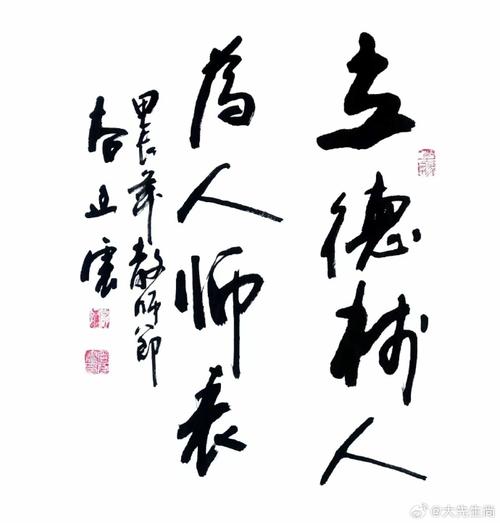 立德树人
为人师表
甲辰年教师节
春正云
@大先生尚